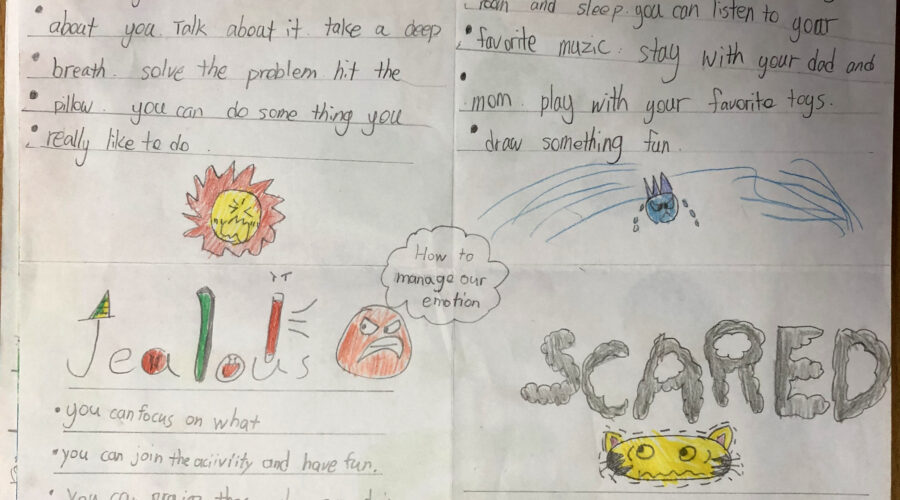 about you. Talk about it. take a deep
breath. solve the problem. hit the
pillow. you can do some thing you
really like to do.
and sleep. you can listen to your
favorite muzic. stay with your dad and
mom. play with your favorite toys.
draw something fun.
How to
manage our
emotion
Jealous
you can focus on what
you can join the aciivility and have fun.
SCARED